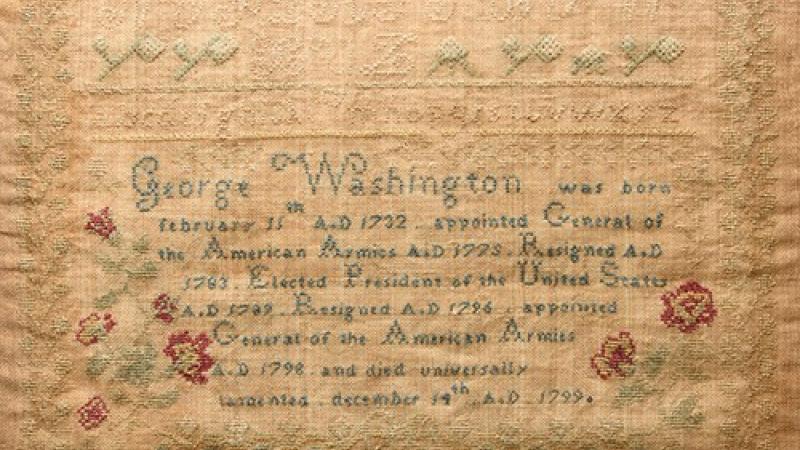 Z
n o p q r s t u v w x y z
George Washington was born
february 11th A.D 1732 . appointed General of
the American Armies A.D 1775 . Resigned A.D
1783 . Elected President of the United States
A.D 1789 . Resigned A.D 1796 . appointed
General of the American Armies
A.D 1798 . and died universally
lamented . december 14th A.D 1799.